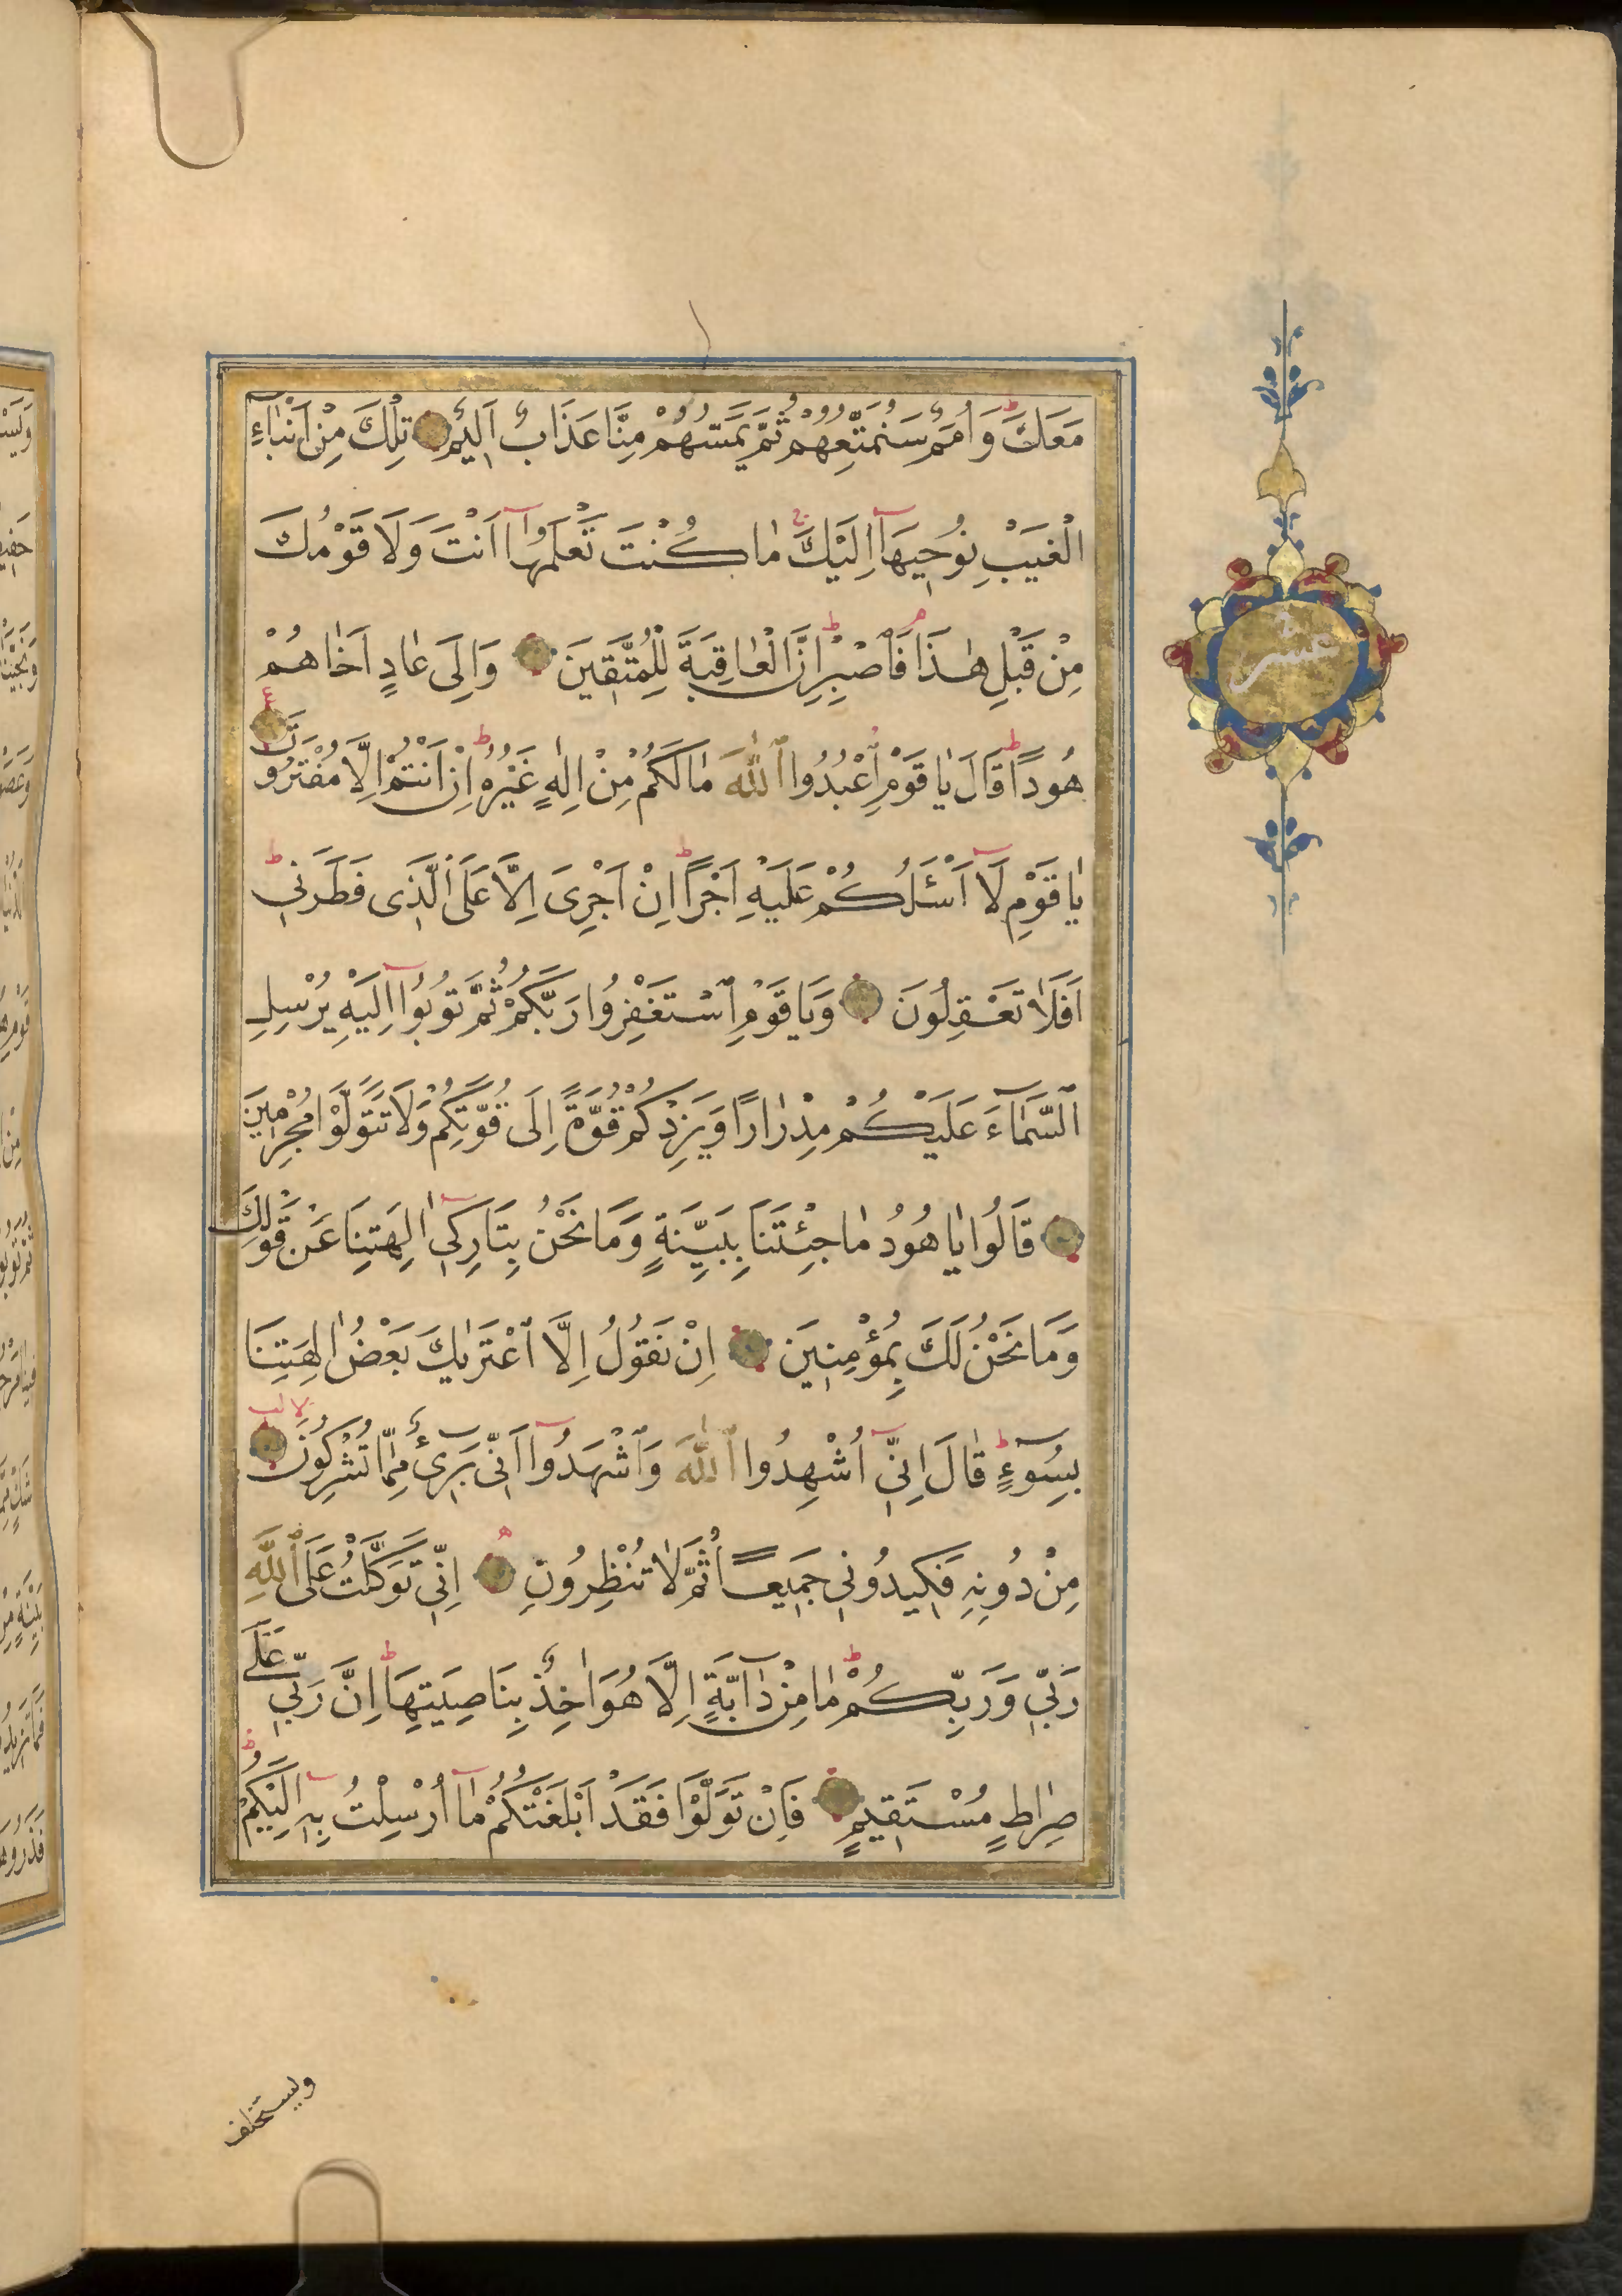 مَعَكَ وَاُمَمٌ سَنُمَتِّعُهُمْ ثُمَّ يَمَسُّهُمْ مِنَّا عَذَابٌ اَلِيمٌ تِلْكَ مِنْ اَنْبَٓاءِ
الْغَيْبِ نُوحِيهَٓا اِلَيْكَ مَا كُنْتَ تَعْلَمُهَٓا اَنْتَ وَلَا قَوْمُكَ
مِنْ قَبْلِ هٰذَا فَاصْبِرْ اِنَّ الْعَاقِبَةَ لِلْمُتَّقِينَ وَاِلٰى عَادٍ اَخَاهُمْ
هُودًا قَالَ يَا قَوْمِ اعْبُدُوا اللّٰهَ مَا لَكُمْ مِنْ اِلٰهٍ غَيْرُهُ اِنْ اَنْتُمْ اِلَّا مُفْتَرُونَ
يَا قَوْمِ لَٓا اَسْئَلُكُمْ عَلَيْهِ اَجْرًا اِنْ اَجْرِىَ اِلَّا عَلَى الَّذِى فَطَرَنِى
اَفَلَا تَعْقِلُونَ وَيَا قَوْمِ اسْتَغْفِرُوا رَبَّكُمْ ثُمَّ تُوبُٓوا اِلَيْهِ يُرْسِلِ
السَّمَٓاءَ عَلَيْكُمْ مِدْرَارًا وَيَزِدْكُمْ قُوَّةً اِلٰى قُوَّتِكُمْ وَلَا تَتَوَلَّوْا مُجْرِمِينَ
قَالُوا يَا هُودُ مَا جِئْتَنَا بِبَيِّنَةٍ وَمَا نَحْنُ بِتَارِكِٓى اٰلِهَتِنَا عَنْ قَوْلِكَ
وَمَا نَحْنُ لَكَ بِمُؤْمِنِينَ اِنْ نَقُولُ اِلَّا اعْتَرٰيكَ بَعْضُ اٰلِهَتِنَا
بِسُٓوءٍ قَالَ اِنِّٓى اُشْهِدُوا اللّٰهَ وَاشْهَدُٓوا اَنِّى بَرِٓىءٌ مِمَّا تُشْرِكُونَ
مِنْ دُونِهِ فَكِيدُونِى جَمِيعًا ثُمَّ لَا تُنْظِرُونِ اِنِّى تَوَكَّلْتُ عَلَى اللّٰهِ
رَبِّى وَرَبِّكُمْ مَا مِنْ دَٓابَّةٍ اِلَّا هُوَ اٰخِذٌ بِنَاصِيَتِهَا اِنَّ رَبِّى عَلٰى
صِرَاطٍ مُسْتَقِيمٍ فَاِنْ تَوَلَّوْا فَقَدْ اَبْلَغْتُكُمْ مَٓا اُرْسِلْتُ بِهِٓ اِلَيْكُمْ
عشر
ويستخلف